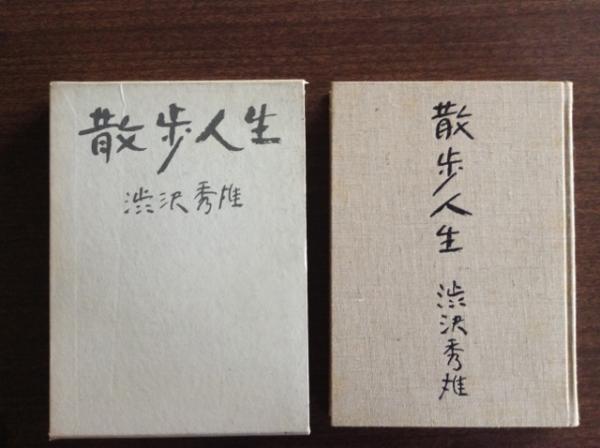 散歩人生
渋沢秀雄
散歩人生 渋沢秀雄